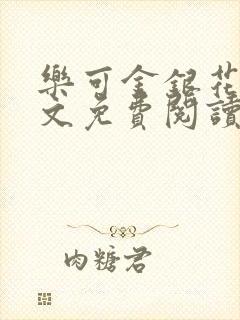 樂可金銀花
文免費閱讀
肉糖君